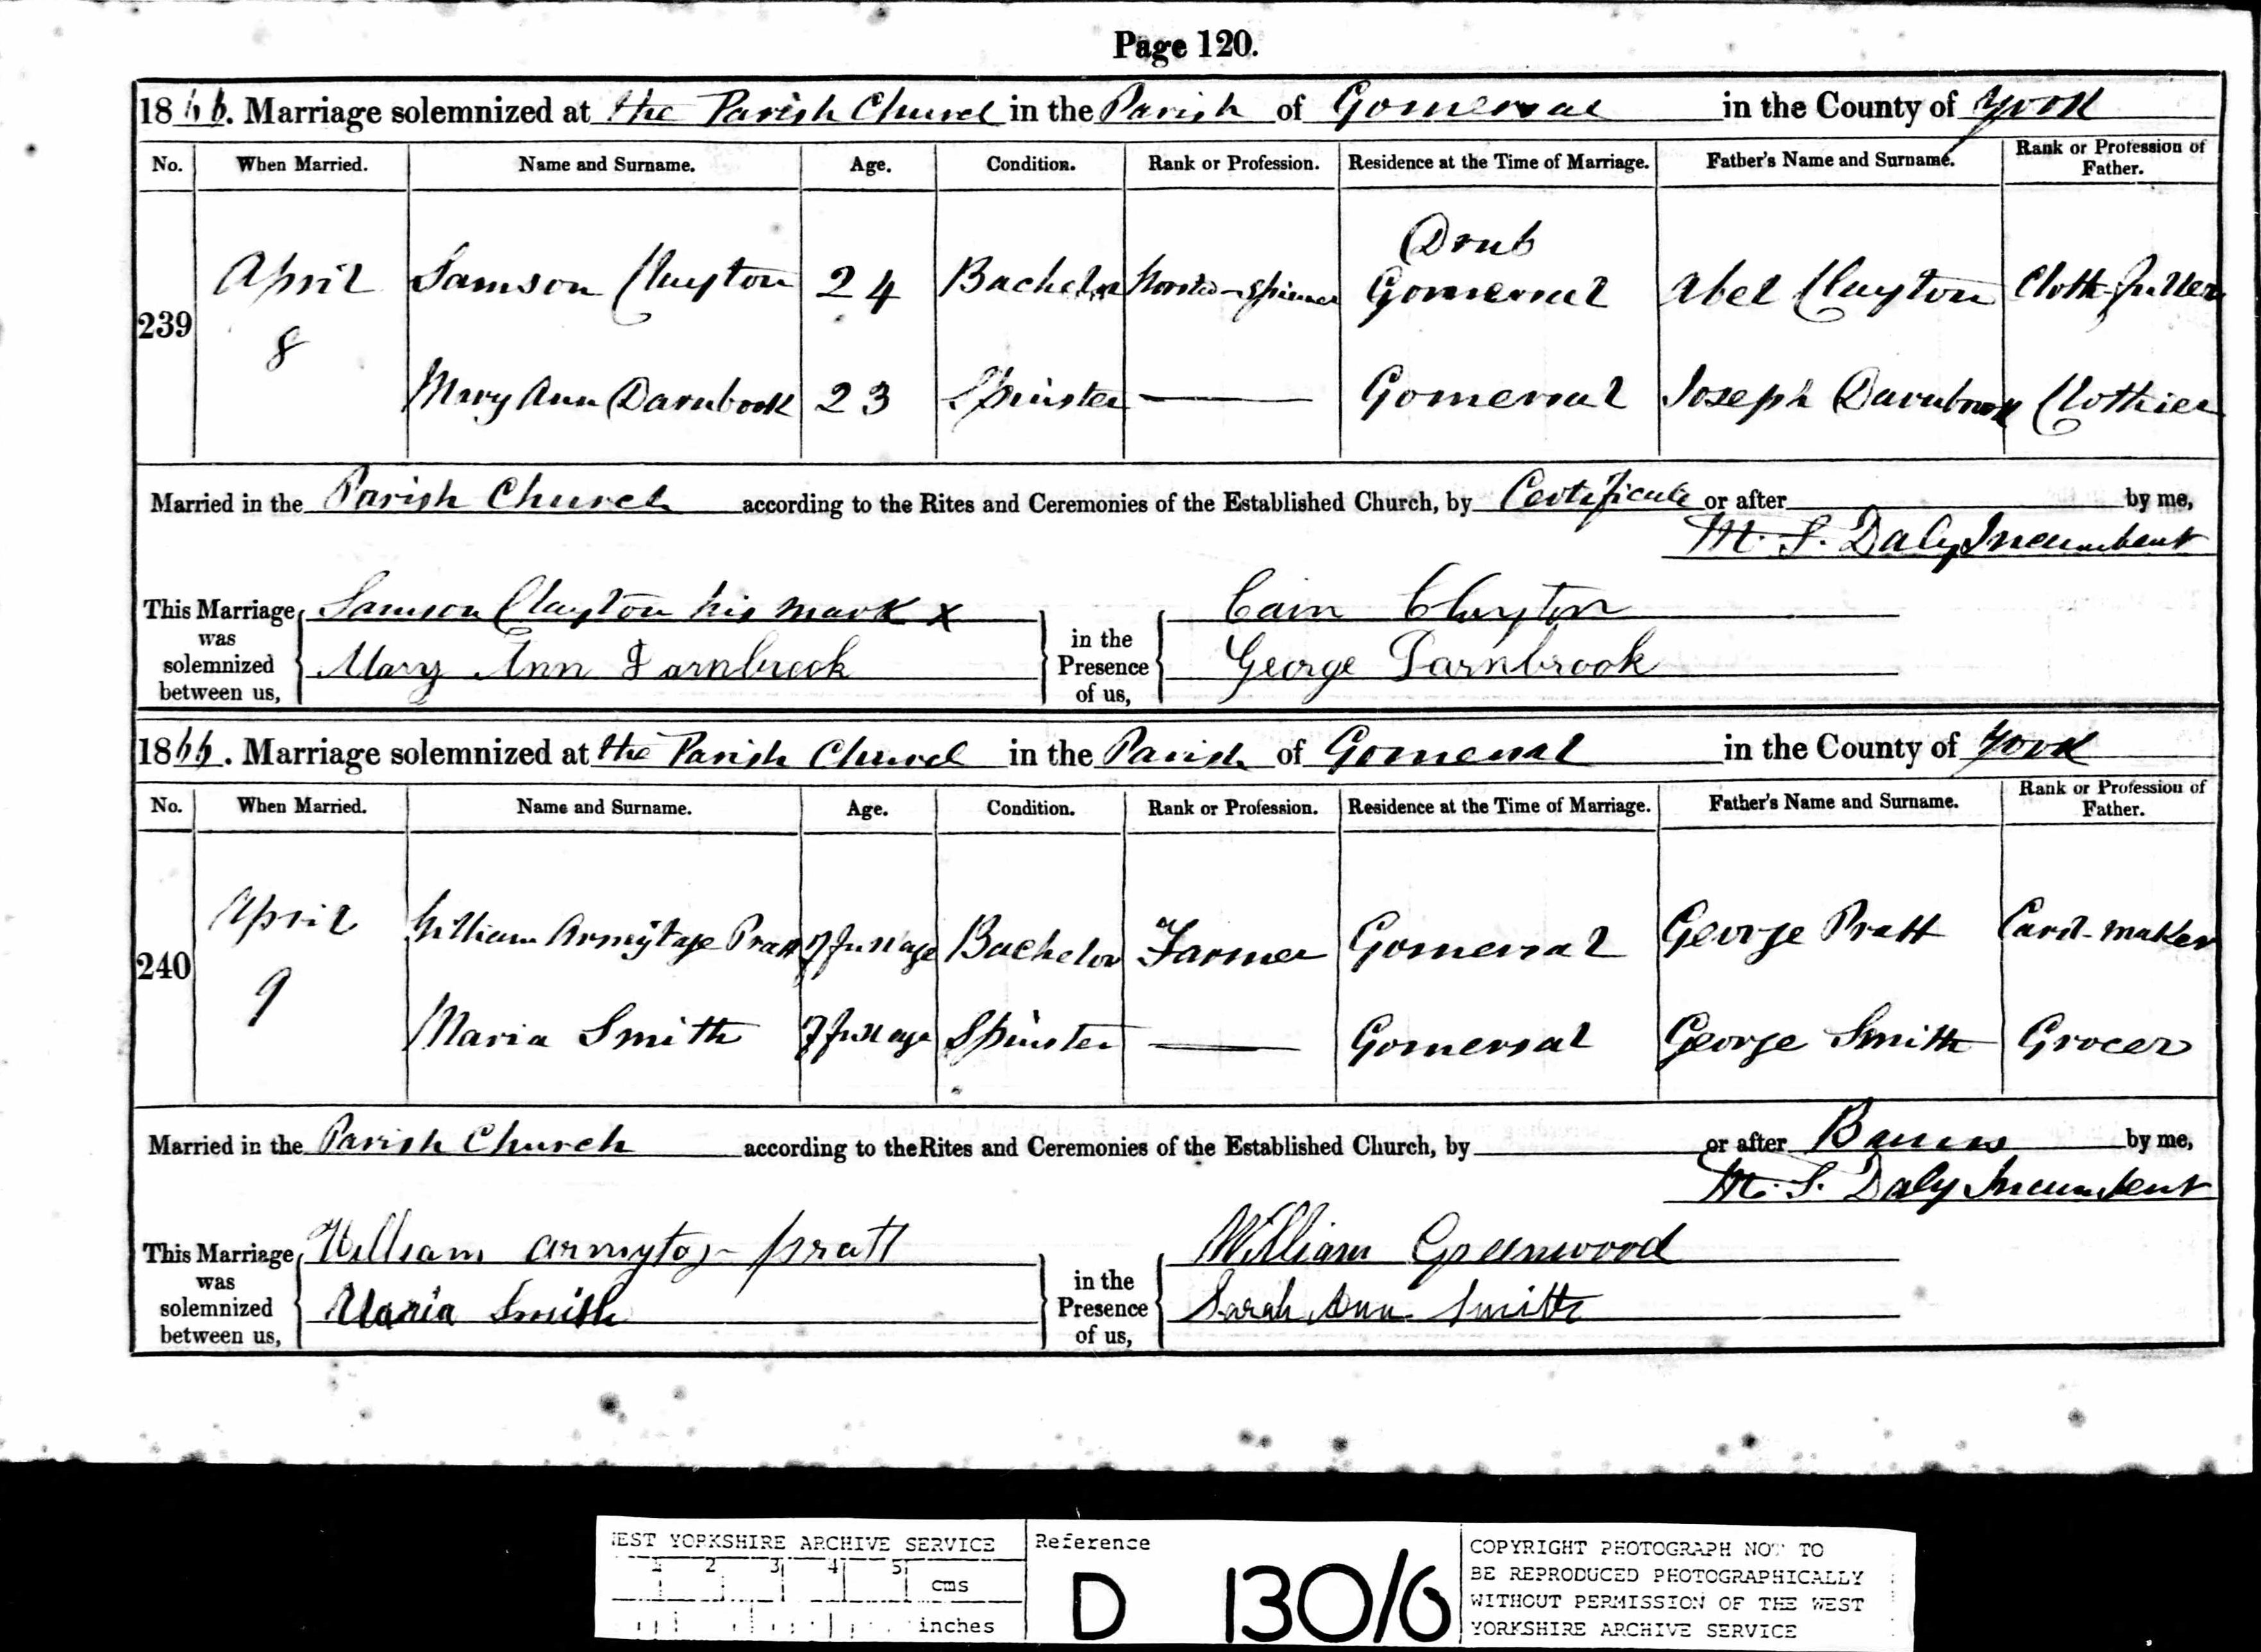 Page 120.
1866. Marriage solemnized at the Parish Church in the Parish of Gomersal in the County of York
No. When Married. Name and Surname. Age. Condition. Rank or Profession. Residence at the Time of Marriage. Father's Name and Surname. Rank or Profession of Father.
239 April 8 Samson Clayton 24 Bachelor Worsted-Spinner Drub Gomersal Abel Clayton Cloth-fuller
Mary Ann Darnbrook 23 Spinster Gomersal Joseph Darnbrook Clothier
Married in the Parish Church according to the Rites and Ceremonies of the Established Church, by Certificate or after by me,
M. S. Daly Incumbent
This Marriage was solemnized between us, Samson Clayton his mark x in the Presence of us, Cain Clayton
Mary Ann Darnbrook George Darnbrook
1866. Marriage solemnized at the Parish Church in the Parish of Gomersal in the County of York
No. When Married. Name and Surname. Age. Condition. Rank or Profession. Residence at the Time of Marriage. Father's Name and Surname. Rank or Profession of Father.
240 April 9 William Armytage Pratt Of full age Bachelor Farmer Gomersal George Pratt Card-maker
Maria Smith Of full age Spinster Gomersal George Smith Grocer
Married in the Parish Church according to the Rites and Ceremonies of the Established Church, by or after Banns by me,
M. S. Daly Incumbent
This Marriage was solemnized between us, William Armytage Pratt in the Presence of us, William Greenwood
Maria Smith Sarah Ann Smith
WEST YORKSHIRE ARCHIVE SERVICE
1 2 3 4 5 cms
inches
Reference
D 130/6
COPYRIGHT PHOTOGRAPH NOT TO
BE REPRODUCED PHOTOGRAPHICALLY
WITHOUT PERMISSION OF THE WEST
YORKSHIRE ARCHIVE SERVICE